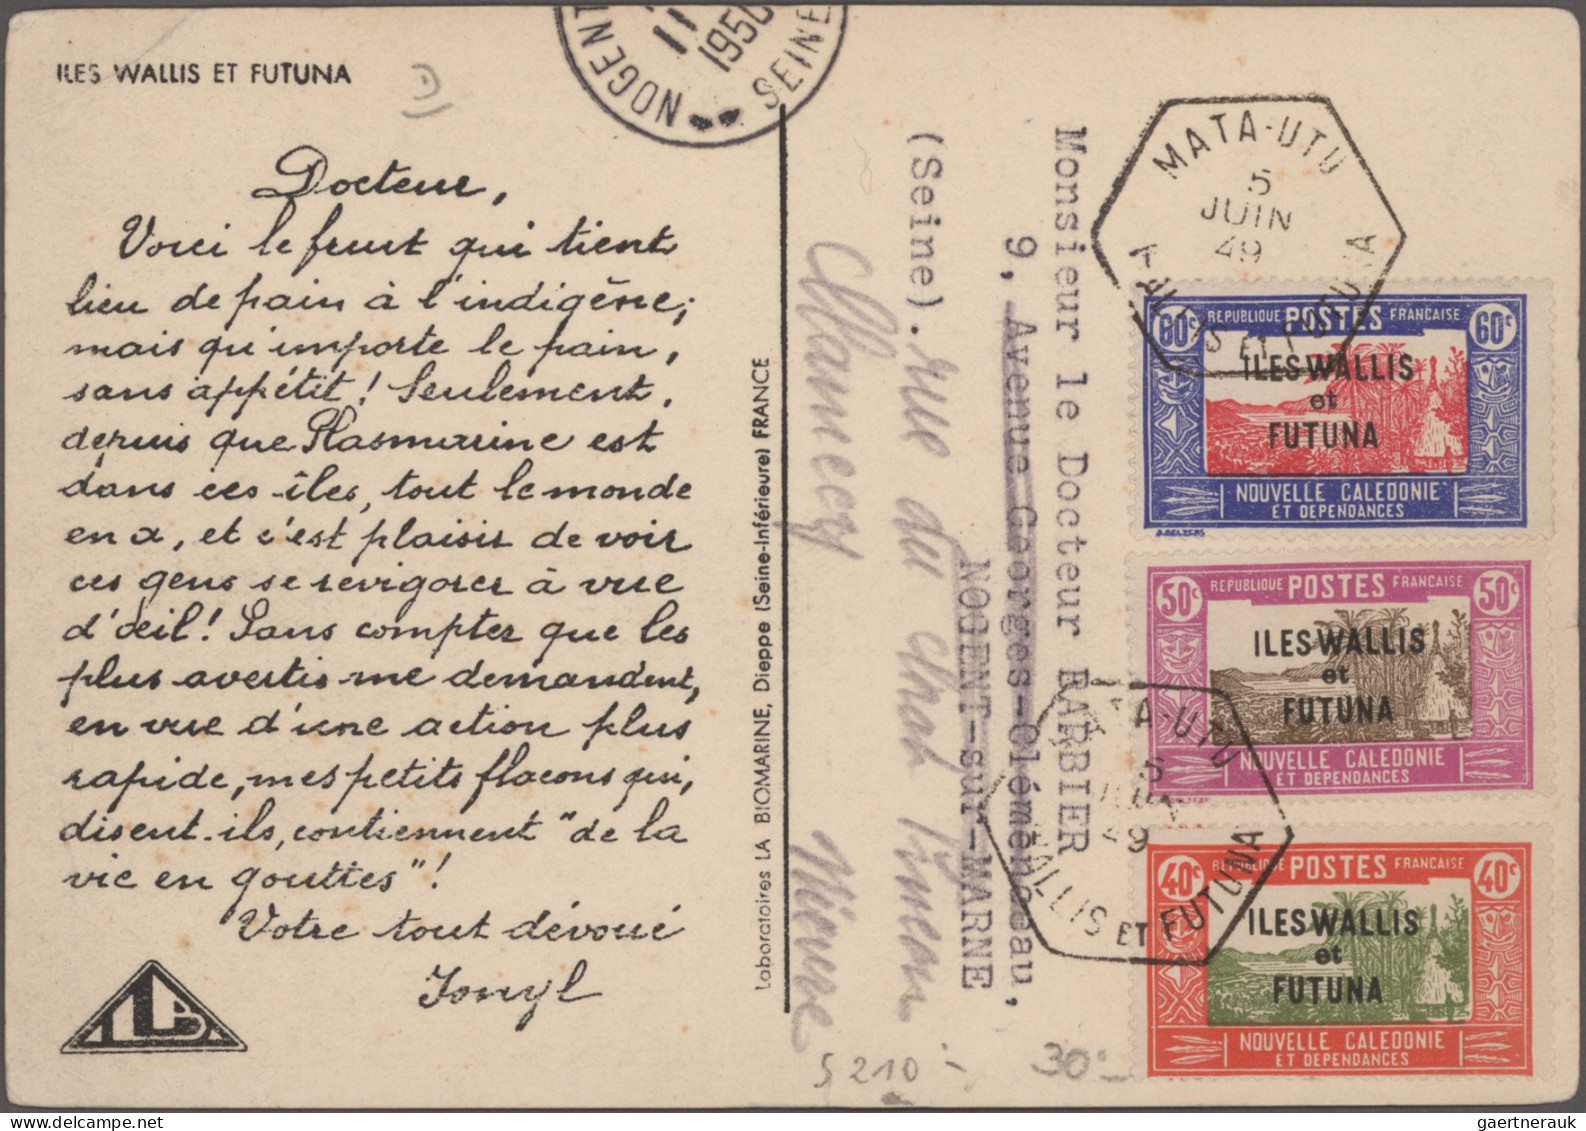 ILES WALLIS ET FUTUNA
Docteur,
Voici le fruit qui tient
lieu de pain à l'indigène;
mais qu'importe le pain,
sans appétit! Seulement,
depuis que Plasmarine est
dans ces îles, tout le monde
en a, et c'est plaisir de voir
ces gens se revigorer à vue
d'œil! Sans compter que les
plus avertis me demandent,
en vue d'une action plus
rapide, mes petits flacons qui,
disent-ils, contiennent "de la
vie en gouttes"!
Votre tout dévoué
Ionyl
Laboratoires LA BIOMARINE, Dieppe (Seine-Inférieure) FRANCE
NOGENT
11
1950
SEINE
Monsieur le Docteur BARBIER
9, Avenue Georges-Clémenceau,
NOGENT-sur-MARNE
(Seine).
rue du
Clamecy
Nièvre
5210.-
30.-
MATA-UTU
5
JUIN
49
WALLIS ET FUTUNA
60c REPUBLIQUE POSTES FRANÇAISE 60c
ILES WALLIS
et
FUTUNA
NOUVELLE CALEDONIE
ET DEPENDANCES
50c REPUBLIQUE POSTES FRANÇAISE 50c
ILES WALLIS
et
FUTUNA
NOUVELLE CALEDONIE
ET DEPENDANCES
MATA-UTU
5
JUIN
49
WALLIS ET FUTUNA
40c REPUBLIQUE POSTES FRANÇAISE 40c
ILES WALLIS
et
FUTUNA
NOUVELLE CALEDONIE
ET DEPENDANCES
LB
gaertnerauk